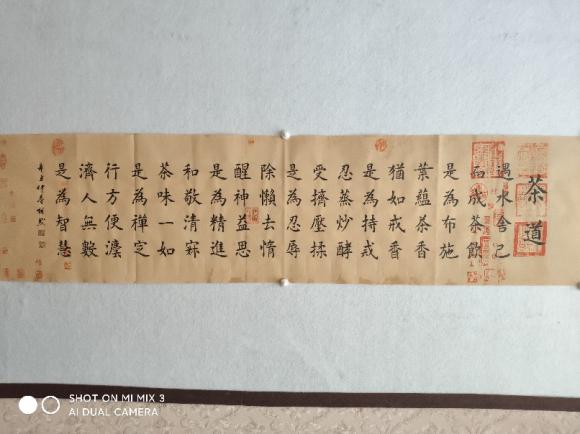 茶道
遇水舍己
而成茶飲
是為布施
葉蘊茶香
猶如戒香
是為持戒
忍蒸炒酵
受擠壓揉
是為忍辱
除懶去惰
醒神益思
是為精進
和敬清寂
茶味一如
是為禪定
行方便濟
濟人無數
是為智慧
SHOT ON MI MIX 3
AI DUAL CAMERA